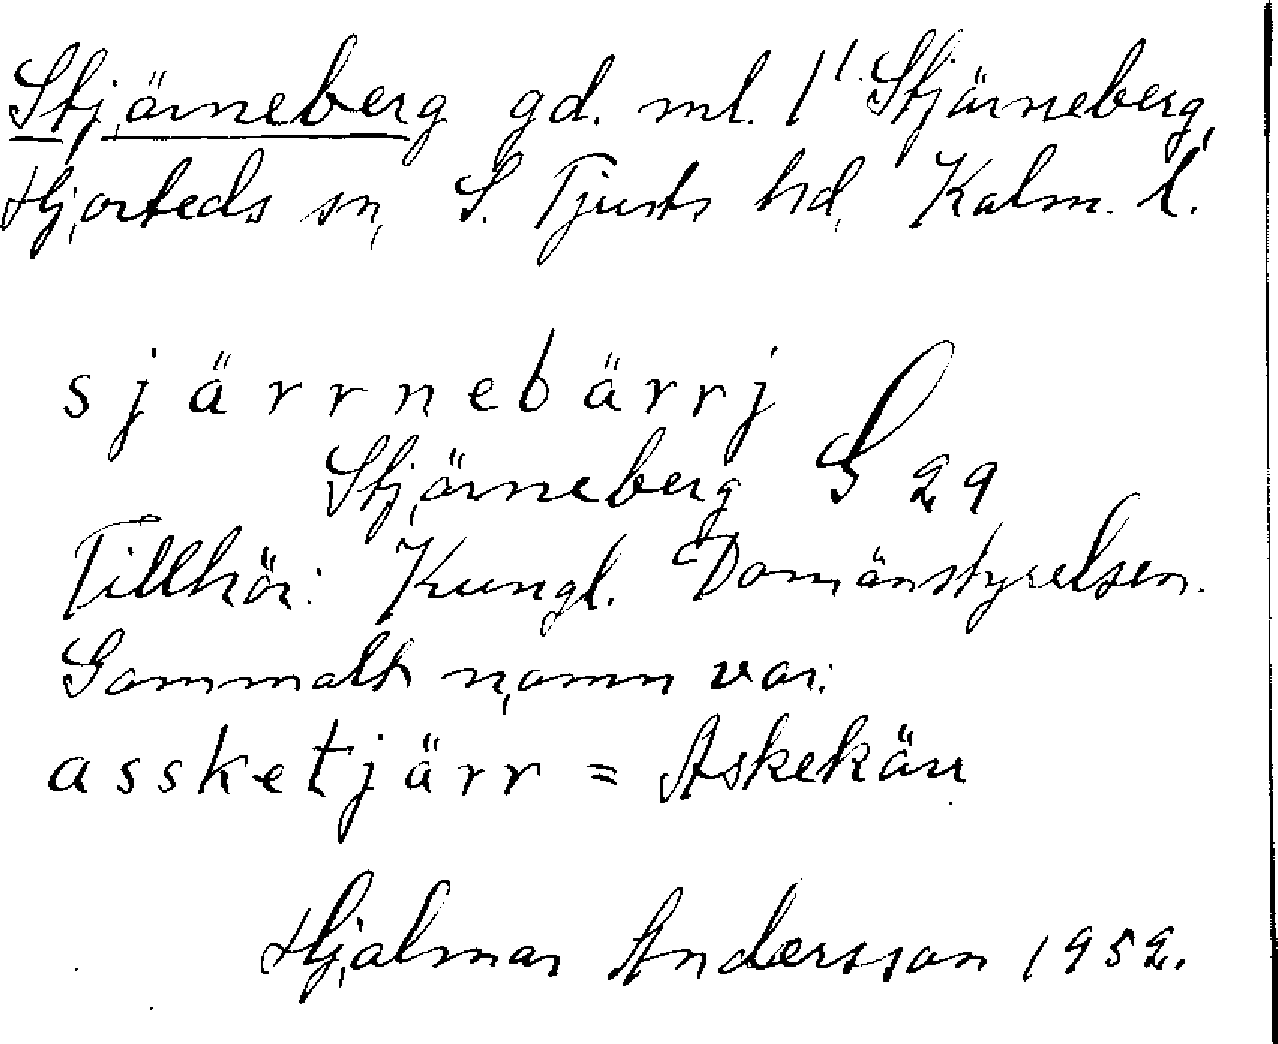 Stjärneberg gd. ml. 1/1 Stjärneberg,
Hjorteds sn, S. Tjusts hd, Kalm. l.
sjärrnebärrj
Stjärneberg S 29
Tillhör: Kungl. Domänstyrelsen.
Gammalt namn var:
assketjärr = Askekärr
Hjalmar Andersson 1952.